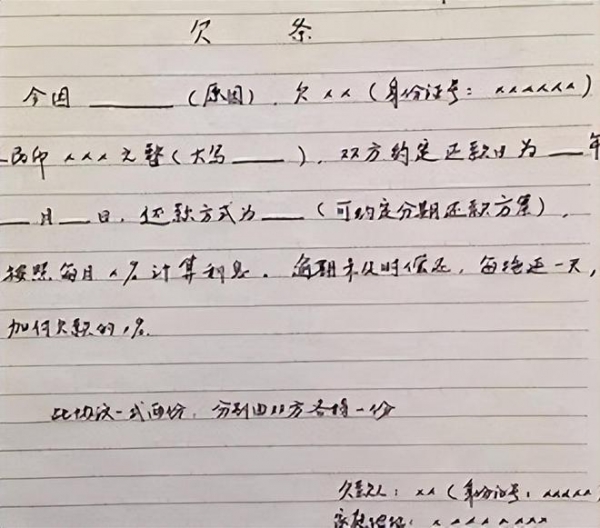 欠 条
今因______(原因),欠××(身份证号:××××××)
民币×××元整(大写____),双方约定还款日为___年
__月__日,还款方式为____(可约定分期还款方案),
按照每月×%计算利息。每期未及时偿还,每拖延一天,
加付欠款的1%.
此协议一式两份,分别由双方各持一份
欠款人:××(身份证号:×××××)
家庭地址:××××××××